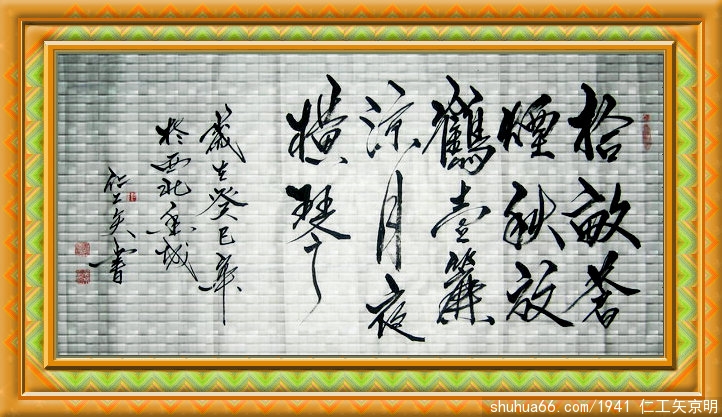 拾畝蒼
煙秋放
鶴壹簾
涼月夜
橫琴
歲在癸巳年
於西北金城
仁工矢書
shuhua66.com/1941 仁工矢京明